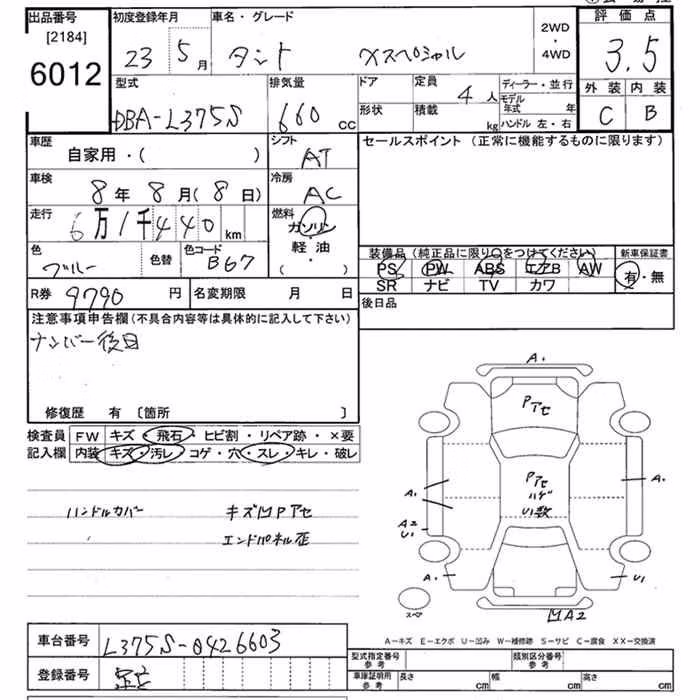 出品番号
[2184]
6012
初度登録年月
23 5月
車名・グレード
タント Xスペシャル
2WD
・
4WD
評価点
3.5
外装 内装
C B
型式
DBA-L375S
排気量
660 cc
ドア
形状
定員
4人
積載
kg
ディーラー・並行
モデル年式 年
ハンドル 左・右
車歴
自家用・( )
シフト
AT
セールスポイント (正常に機能するものに限ります)
車検
8年 8月(8日)
冷房
AC
走行
6万1千440km
燃料
ガソリン
軽・油
・
( )
色
ブルー
色替
色コード
B67
装備品 (純正品に限り○をつけてください)
新車保証書
PS PW ABS エアB AW
SR ナビ TV カワ
有・無
R券 9790 円
名変期限 月 日
後日品
注意事項申告欄 (不具合内容等は具体的に記入して下さい)
ナンバー後日
修復歴 有 〔箇所 〕
検査員
記入欄
FW キズ・飛石・ヒビ割・リペア跡・×要
内装 キズ・汚レ・コゲ・穴・スレ・キレ・破レ
ハンドルカバー
キズ凹Pアセ
エンドパネル歪
A1
Pアセ
Pアセ
ハゲ
U1数
A1
A1
A2
U1
A1
U1
スペア
凹A2
A－キズ E－エクボ U－凹み W－補修跡 S－サビ C－腐食 XX－交換済
車台番号
L375S-0426603
登録番号
型式指定番号
参考
類別区分番号
参考
車庫証明用
参考
長さ cm
幅 cm
高さ cm